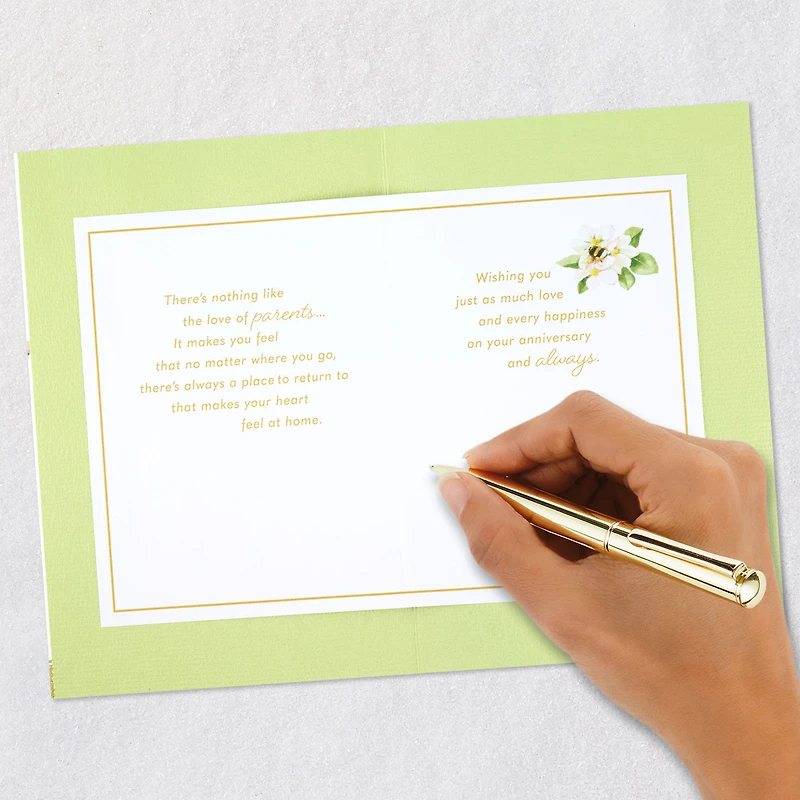 There's nothing like
the love of parents...
It makes you feel
that no matter where you go,
there's always a place to return to
that makes your heart
feel at home.
Wishing you
just as much love
and every happiness
on your anniversary
and always.